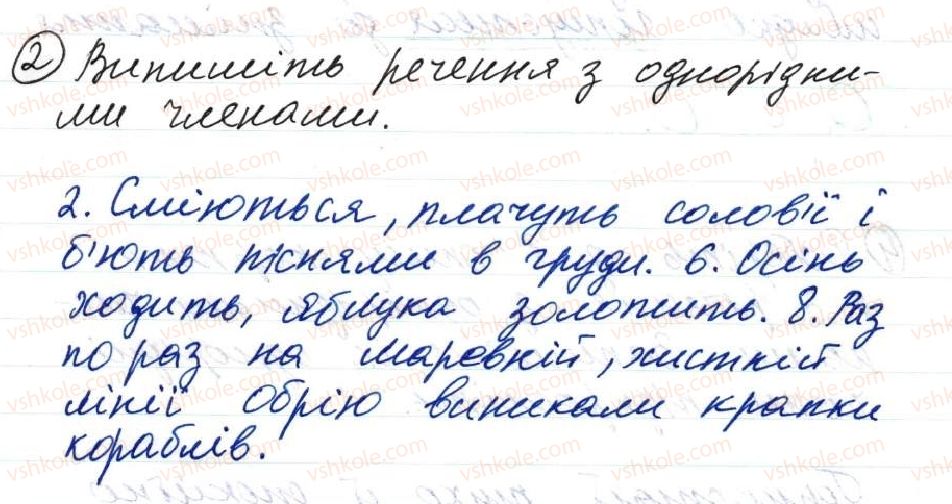 2 Випишіть речення з однорідни-
ми членами.
2. Сміються, плачуть солов'ї і
б'ють піснями в груди. 6. Осінь
ходить, яблука золотить. 8. Раз
по раз на маревній, хисткій
лінії обрію виникали крапки
кораблів.